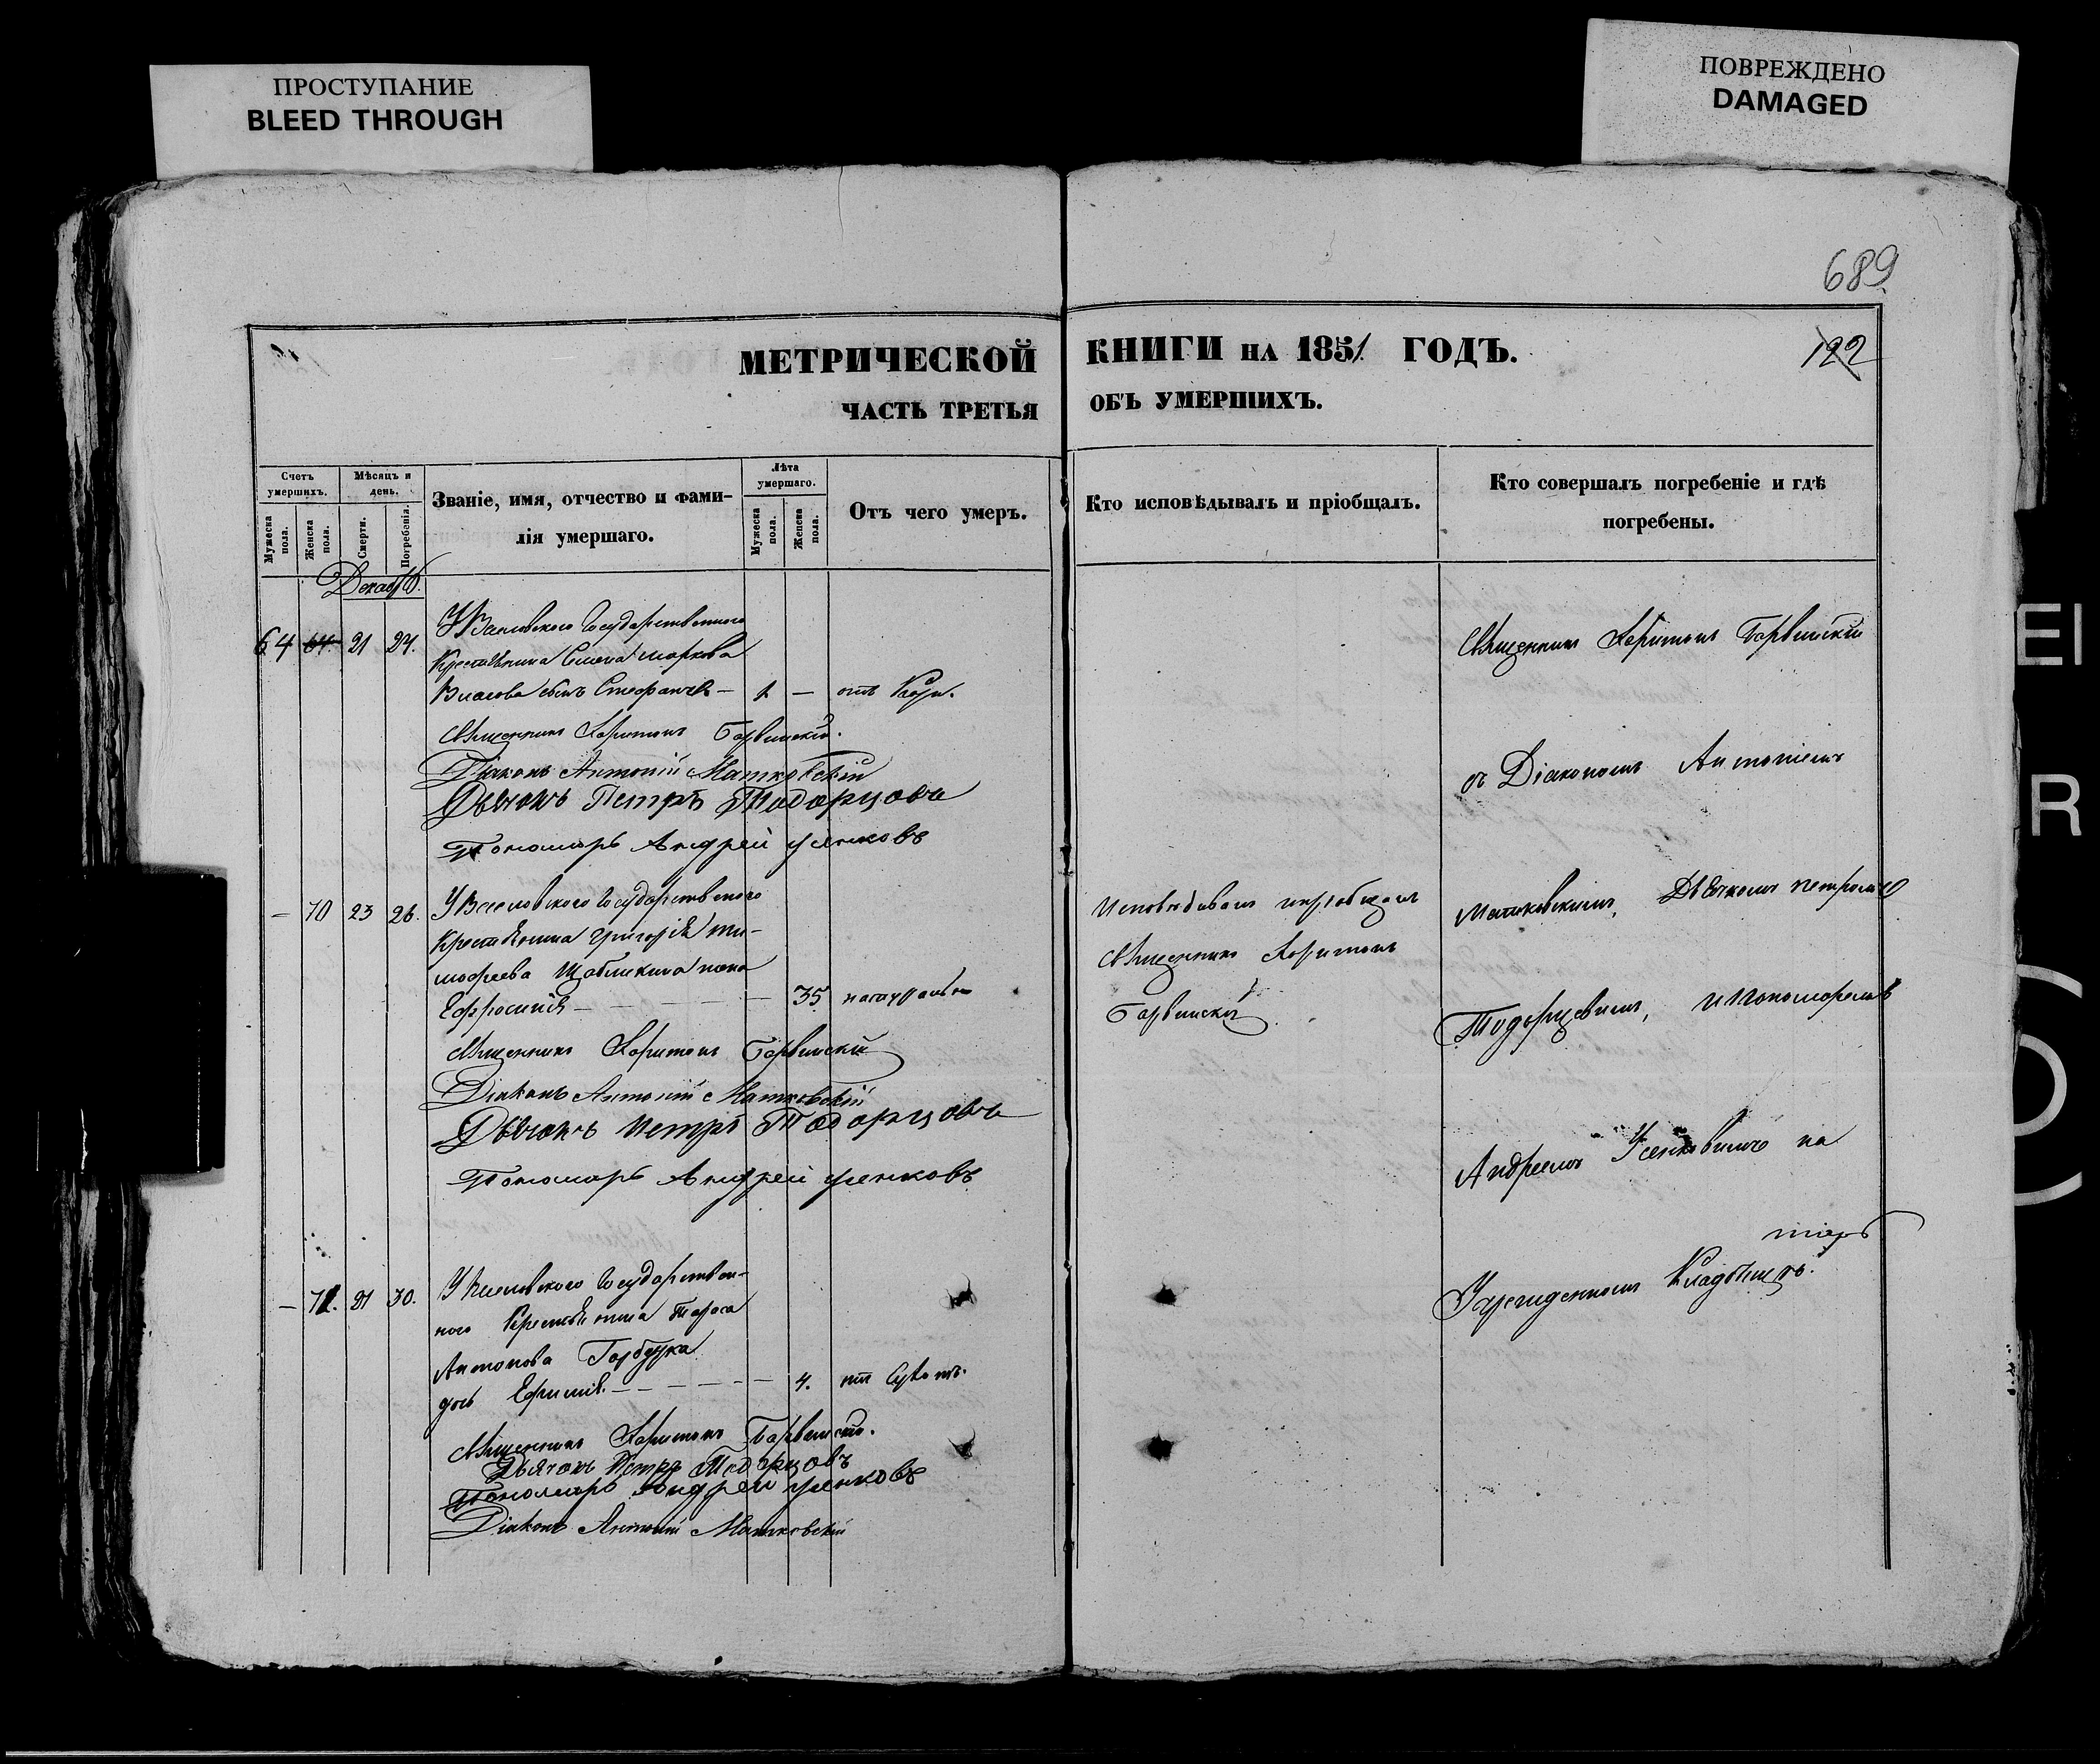 ПРОСТУПАНИЕ
BLEED THROUGH
ПОВРЕЖДЕНО
DAMAGED
689
122
МЕТРИЧЕСКОЙ КНИГИ НА 1851 ГОДЪ.
ЧАСТЬ ТРЕТЬЯ ОБЪ УМЕРШИХЪ.
Счетъ умершихъ.
Мужеска пола.
Женска пола.
Мѣсяцъ и день.
Смерти.
Погребенія.
Званіе, имя, отчество и фами-
лія умершаго.
Лѣта умершаго.
Мужеска пола.
Женска пола.
Отъ чего умеръ.
Кто исповѣдывалъ и пріобщалъ.
Кто совершалъ погребеніе и гдѣ
погребены.
Декабрь
64 21 24.
Государственного
Крестьянина Семена Маркова
Власова сынъ Стефанъ — 1 — отъ Кори.
Священникъ Харитонъ Барвинскій.
Діаконъ Антоній Матковскій
Дьячокъ Петръ Тодорцовъ
Пономарь Андрей Усенковъ
— 70 23 26. Государственного
Крестьянина Григорія Ти-
мофеева жена
Ефросинія — 35 натурально
Священникъ Харитонъ Барвинскій
Діаконъ Антоній Матковскій
Дьячокъ Петръ Тодорцовъ
Пономарь Андрей Усенковъ
— 71. 30. Государствен-
ного Крестьянина Тараса
Антонова Горбурка
дочь — 4. отъ
Священникъ Харитонъ Барвинскій.
Дьячокъ Петръ Тодорцовъ
Пономарь Андрей Усенковъ
Діаконъ Антоній Матковскій
Исповѣдывалъ и пріобщалъ
Священникъ Харитонъ
Барвинскій
Священникъ Харитонъ Барвинскій
съ Діакономъ Антоніемъ
Матковскимъ, Дьячкомъ Петромъ
Тодорцовымъ, и Пономаремъ
Андреемъ Усенковымъ на
Учрежденномъ Кладбищѣ.